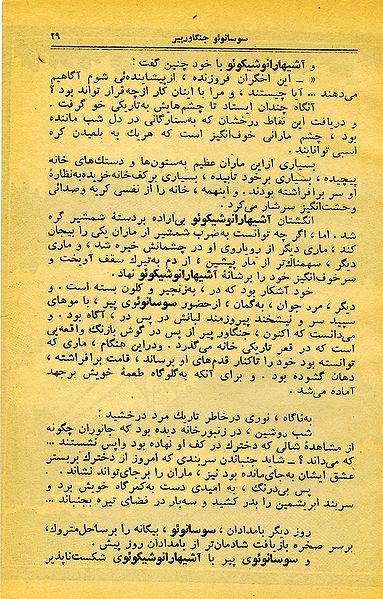 سوسانوئو جنگاور پیر ۲۹
و آشیهارانوشیکوئو با خود چنین گفت :
« ـ این اخگران فروزنده ، ازپیشابنده‌ئی شوم آگاهیم
می‌دهند ... آیا چیستند ، و مرا با اینان کار ازچه‌قرار تواند بود ؟
آنگاه چندان ایستاد تا چشم‌هایش به‌تاریکی خو گرفت .
و دریافت این نقاط رخشان که به‌ستارگانی در دل شب مانده
بود ، چشم مارانی خوف‌انگیز است که هریك به بلعیدن کره
اسبی توانایند .
بسیاری ازاین ماران عظیم به‌ستون‌ها و دستك‌های خانه
پیچیده ، بسیاری برخود تابیده ، بسیاری برکف‌خانه‌خزیده‌به‌نظارهٔ
او سر برافراشته بودند . و اینهمه ، خانه را از نفسی کریه وصدائی
وحشت‌انگیز سرشار می‌کرد .
انگشتان آشیهارانوشیکوئو بی‌اراده بردستهٔ شمشیر گره
شد . اما ، اگر چه توانست به‌ضرب شمشیر از ماران یکی را بیجان
کند ، ماری دیگر از رویاروی او در چشمانش خیره شد ، و ماری
دیگر ، سهمناك‌تر از مار پیشین ، از دم به‌تیرك سقف آویخت و
سرخوف‌انگیز خود را برشانهٔ آشیهارانوشیکوئو نهاد .
خود آشکار بود که در ، به‌زنجیر و کلون بسته است . و
دیگر ، مرد جوان ، به‌گمان ، ازحضور سوسانوئوی پیر ، با موهای
سپید سر و نیشخند پیروزمند لبانش در پس در ، آگاه بود . و
می‌دانست که اکنون ، جنگاور پیر از پس در گوش بازنگ واقعه‌یی
است که در قعر تاریکی خانه می‌گذرد . ودراین هنگام ، ماری که
توانسته بود خود را تاکنار قدم‌های او برساند ، قامت برافراشته ،
دهان گشوده بود . و برای آنکه به‌گلوگاه طعمهٔ خویش برجهد
آماده می‌شد .
به‌ناگاه ، نوری درخاطر تاریك مرد درخشید :
شب دوشین ، در زنبورخانه دیده بود که جانوران چگونه
از مشاهدهٔ شالی که دخترك در کف او نهاده بود واپس نشستند ...
که می‌داند ؟ ـ شاید جنباندن سربندی که امروز از دخترك بربستر
عشق ایشان به‌جای‌مانده بود نیز ، ماران را برجای‌تواند نشاند .
پس بی‌درنگ ، به امیدی دست به‌کمرگاه خویش برد و
سربند ابریشمین را بدر کشید و سه‌بار در فضای تیره بجنباند ...
روز دیگر بامدادان ، سوسانوئو ، بیگانه را برساحل‌متروك ،
برسر صخره بازیافت شادمان‌تر از بامدادان روز پیش .
و سوسانوئوی پیر با آشیهارانوشیکوئوی شکست‌ناپذیر